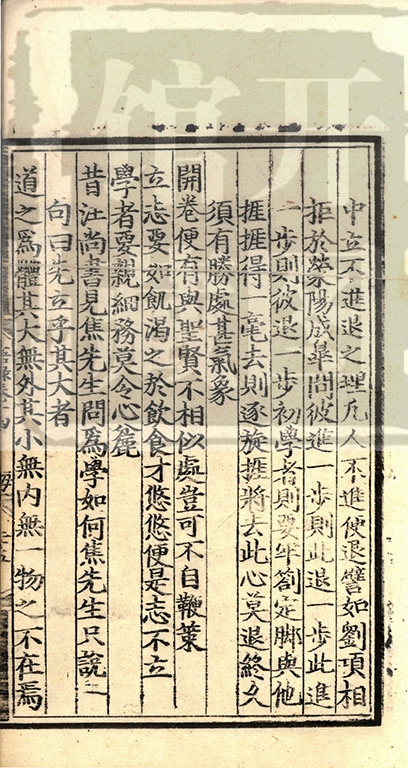 中立不進退之理凡人不進便退譬如劉項相
拒於滎陽成臯間彼進一步則此退一步此進
一步則彼退一步初學者則要牢劄定脚與他
捱捱得一毫去則逐旋捱將去此心莫退終久
須有勝處甚氣象
開卷便有與聖賢不相似處豈可不自鞭策
立志要如飢渴之於飲食才悠悠便是志不立
學者要親細務莫令心麄
昔汪尚書見焦先生問爲學如何焦先生只說一
句曰先立乎其大者
道之爲體其大無外其小無內無一物之不在焉